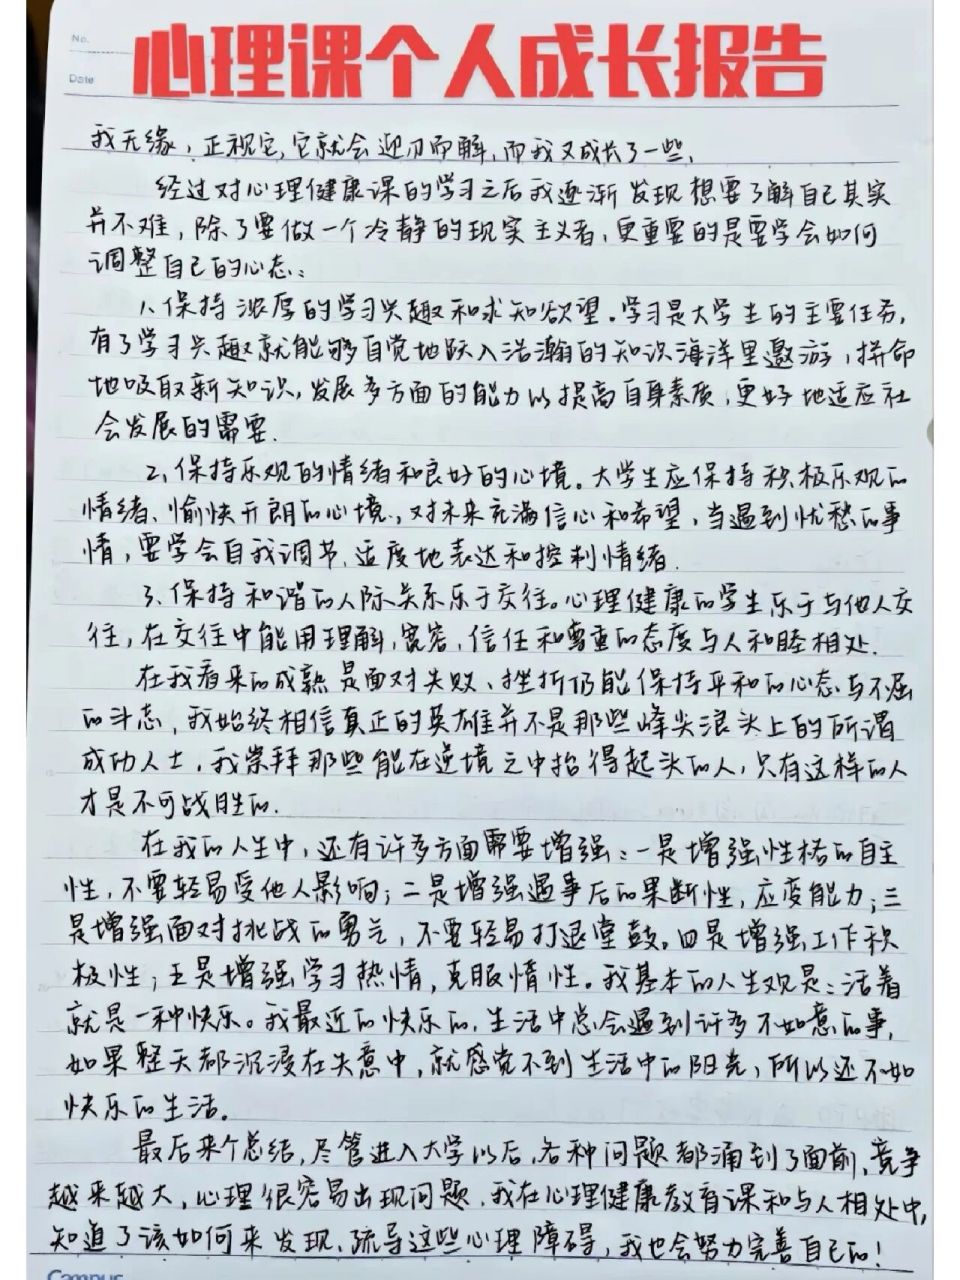 No.
心理课个人成长报告
Date
我无缘，正视它，它就会迎刃而解，而我又成长了一些，
经过对心理健康课的学习之后我逐渐发现想要了解自己其实
并不难，除了要做一个冷静的现实主义者，更重要的是要学会如何
调整自己的心态：
1、保持浓厚的学习兴趣和求知欲望。学习是大学生的主要任务，
有了学习兴趣就能够自觉地跃入浩瀚的知识海洋里遨游，拼命
地吸取新知识，发展多方面的能力以提高自身素质，更好地适应社
会发展的需要.
2、保持乐观的情绪和良好的心境。大学生应保持积极乐观的
情绪、愉快开朗的心境，对未来充满信心和希望，当遇到忧愁的事
情，要学会自我调节、适度地表达和控制情绪.
3、保持和谐的人际关系乐于交往。心理健康的学生乐于与他人交
往，在交往中能用理解，宽容，信任和尊重的态度与人和睦相处.
在我看来的成熟是面对失败、挫折仍能保持平和的心态与不屈
的斗志，我始终相信真正的英雄并不是那些峰尖浪头上的所谓
成功人士，我崇拜那些能在逆境之中抬得起头的人，只有这样的人
才是不可战胜的.
在我的人生中，还有许多方面需要增强：一是增强性格的自主
性，不要轻易受他人影响；二是增强遇事后的果断性，应变能力；三
是增强面对挑战的勇气，不要轻易打退堂鼓。四是增强工作积
极性；五是增强学习热情，克服惰性。我基本的人生观是：活着
就是一种快乐。我最近的快乐的，生活中总会遇到许多不如意的事，
如果整天都沉浸在失意中，就感觉不到生活中的阳光，所以还不如
快乐的生活。
最后来个总结，尽管进入大学以后，各种问题都涌到了面前，竞争
越来越大，心理很容易出现问题，我在心理健康教育课和与人相处中，
知道了该如何来发现、疏导这些心理障碍，我也会努力完善自己的！
Campus